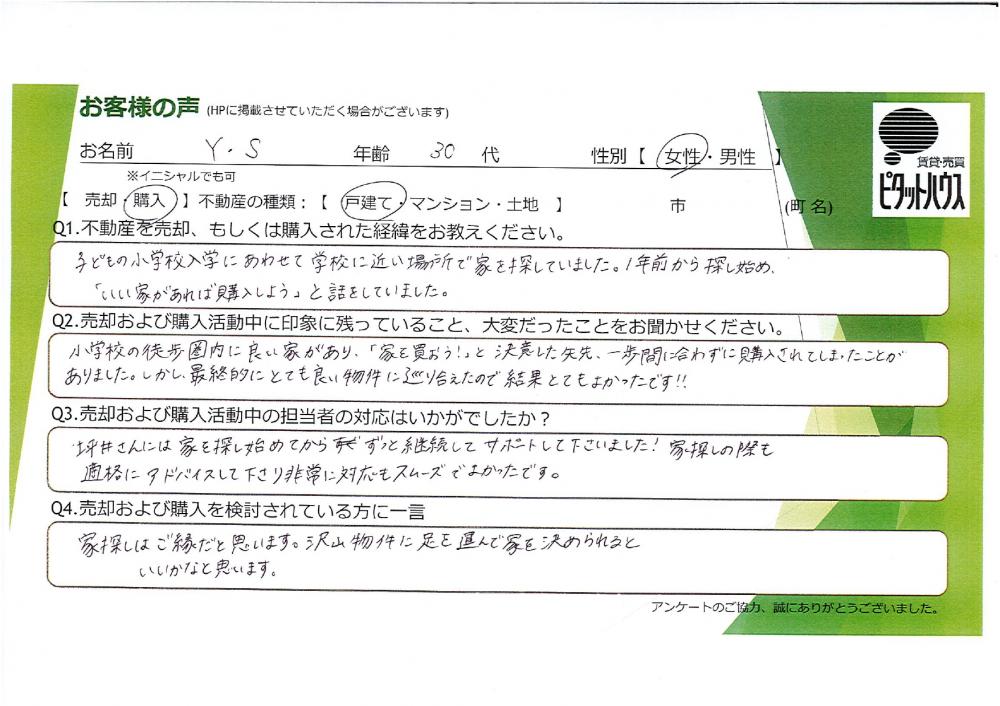 お客様の声 (HPに掲載させていただく場合がございます)
お名前 Y・S 年齢 30 代 性別【 女性・男性 】
※イニシャルでも可
賃貸・売買
ピタットハウス
【 売却・購入 】不動産の種類：【 戸建て・マンション・土地 】 市 (町名)
Q1.不動産を売却、もしくは購入された経緯をお教えください。
子どもの小学校入学にあわせて学校に近い場所で家を探していました。1年前から探し始め、
「いい家があれば購入しよう」と話をしていました。
Q2.売却および購入活動中に印象に残っていること、大変だったことをお聞かせください。
小学校の徒歩圏内に良い家があり、「家を買おう!」と決意した矢先、一歩間に合わずに購入されてしまったことが
ありました。しかし、最終的にとても良い物件に巡り合えたので結果とてもよかったです!!
Q3.売却および購入活動中の担当者の対応はいかがでしたか？
坪井さんには家を探し始めてからずっと継続してサポートして下さいました! 家探しの際も
適格にアドバイスして下さり非常に対応もスムーズでよかったです。
Q4.売却および購入を検討されている方に一言
家探しはご縁だと思います。沢山物件に足を運んで家を決められると
いいかなと思います。
アンケートのご協力、誠にありがとうございました。